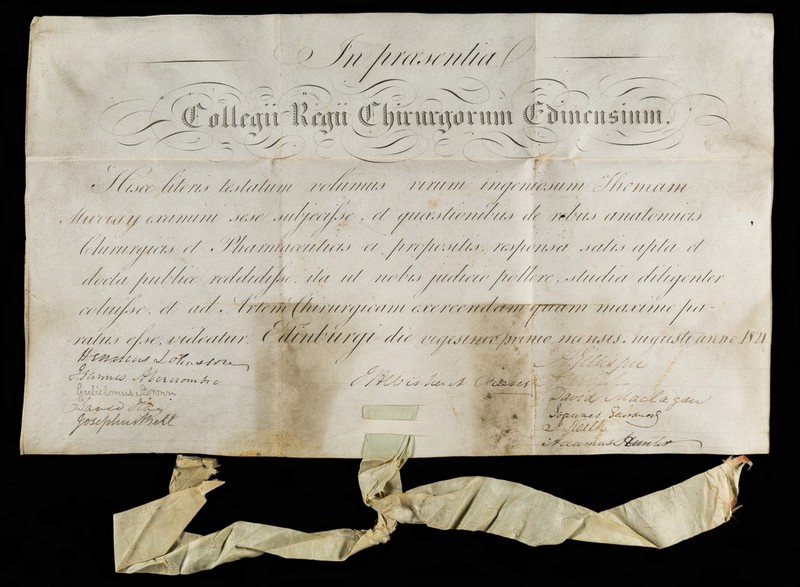 In præsentia
Collegii Regii Chirurgorum Edinensium.
Hisce literis testatum volumus virum ingeniosum Thomam
Murray examini sese subjecisse, et quæstionibus de rebus anatomicis
Chirurgicis et Pharmaceuticis ei propositis, responsa satis apta et
docta publice reddidisse, ita ut nobis judicio pollere, studia diligenter
coluisse, et ad Artem Chirurgicam exercendam quam maxime pa-
ratus esse, videatur. Edinburgi die vigesimo primo mensis Augusti anno 1821
Henricus Johnston
Joannes Abercrombie
Gulielmus Brown
David Hay
Josephus Bell
Præses
Gillespie
David Maclagan
Joannes
J Keith
Adamus Hunter